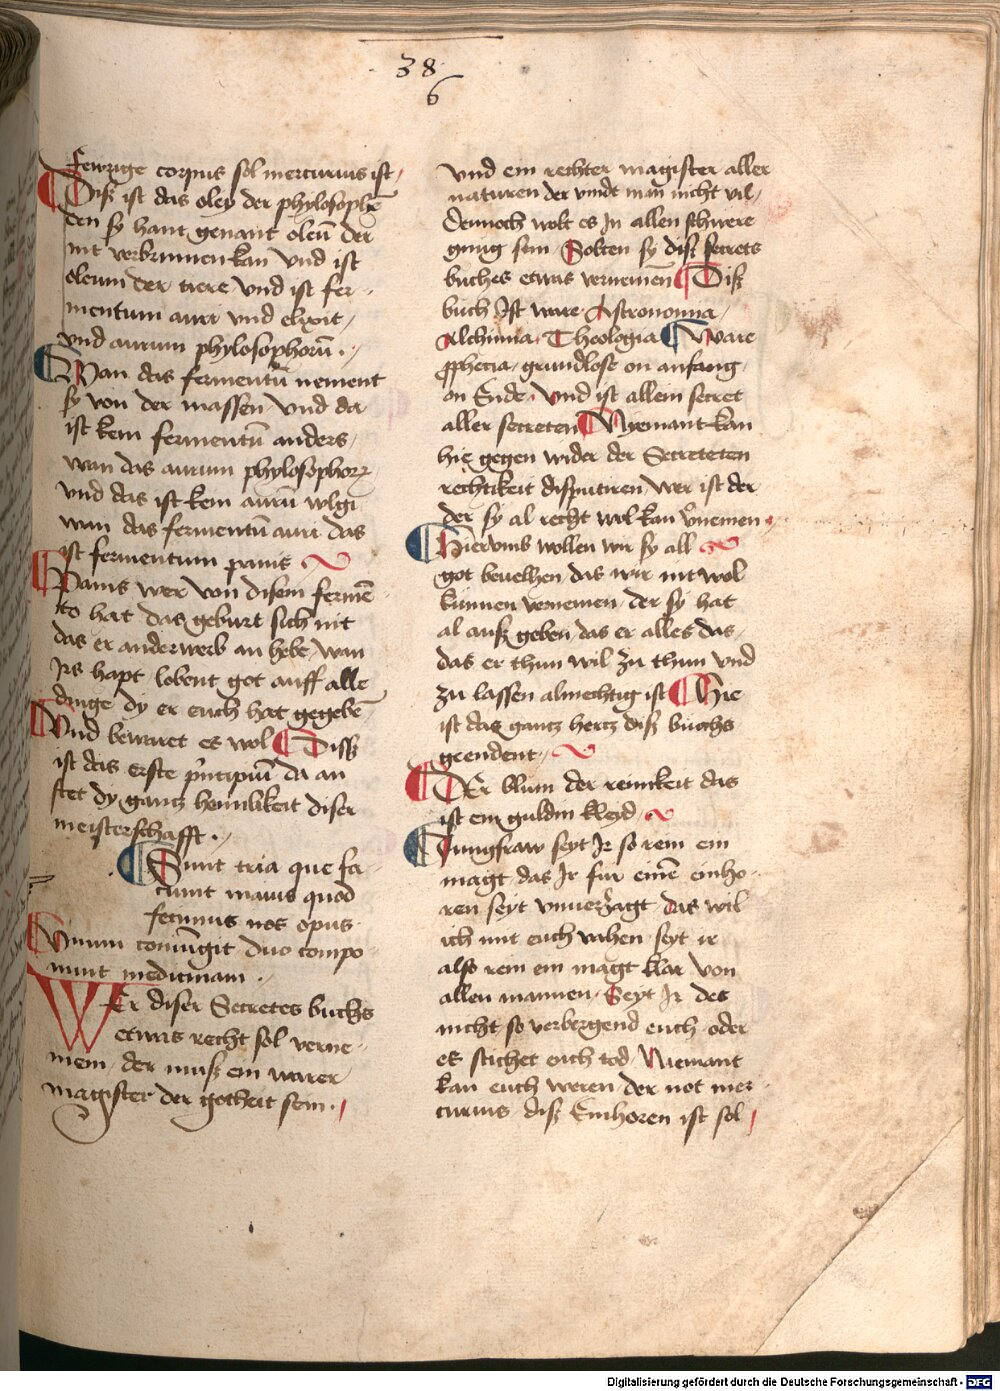 38
6
fewrige corpus sol mercurius ist
Diß ist das oley der philosophē
den sy hant genant oleū der
nit verbrinnen kan vnd ist
oleum der tiere vnd ist fer
mentum auri vnd elixir
vnd aurum phylosophorū
Wan das fermentū nement
sy von der massen vnd da
ist kein fermentū anders
wan das aurum phylosophorꝝ
vnd das ist kein aurū wlgi
wan das fermentū auri das
ist fermentum panis
Panis wer von disem fermē
to hat das geburt sich nit
das er anderwerb an hebe wan
Irs hapt lobent got auff alle
dinge dy er euch hat gegebē
Vnd bewaret es wol Diss
ist das erste p̄ncipiū da an
stet dy gantz heimlikeit diser
meisterschafft
Sunt tria que fa
ciunt maius quod
fecimus nos opus
Vnum coniūgit duo compo
nunt medicinam
WEr diser Secretes buchs
etwas recht sol verne
mem der muß ein warer
magister der gotheit sein
vnd ein rechter magister aller
naturen der vindt man nicht vil
Dennoch wolt es In allen schwere
gnug sein Solten sy diß secrets
buches etwas vernemen Diß
buch Ist ware Astronomia
Alchimia Theologia Ware
ꝓphecia grundlose on anfang
on Ende vnd ist allein secret
aller secreten Nyemant kan
hie gegen wider der Secreteten
rechtikeit disputiren wer ist der
der sy al recht wol kan v̄nemen
Hiervmb wollen wir sy all
got beuelhen das wir nit wol
kunnen vernemen der sy hat
al auß geben das er alles das
das er thun wil zu thun vnd
zu lassen almechtig ist Hie
ist das gantz hertz diß buchs
geendent
DEr blum der reinikeit das
ist ein guldin kleyd
Iungfraw seyt Ir so rein ein
magt das Ir fur einē einho
ren seyt vnuerzagt das wil
ich mit euch vahen seyt ir
also rein ein magt klar von
allen mannen Seyt Ir des
nicht so verbergend euch oder
er stichet euch tod Niemant
kan euch weren der not mer
curius diß Einhoren ist sol
Digitalisierung gefördert durch die Deutsche Forschungsgemeinschaft - DFG